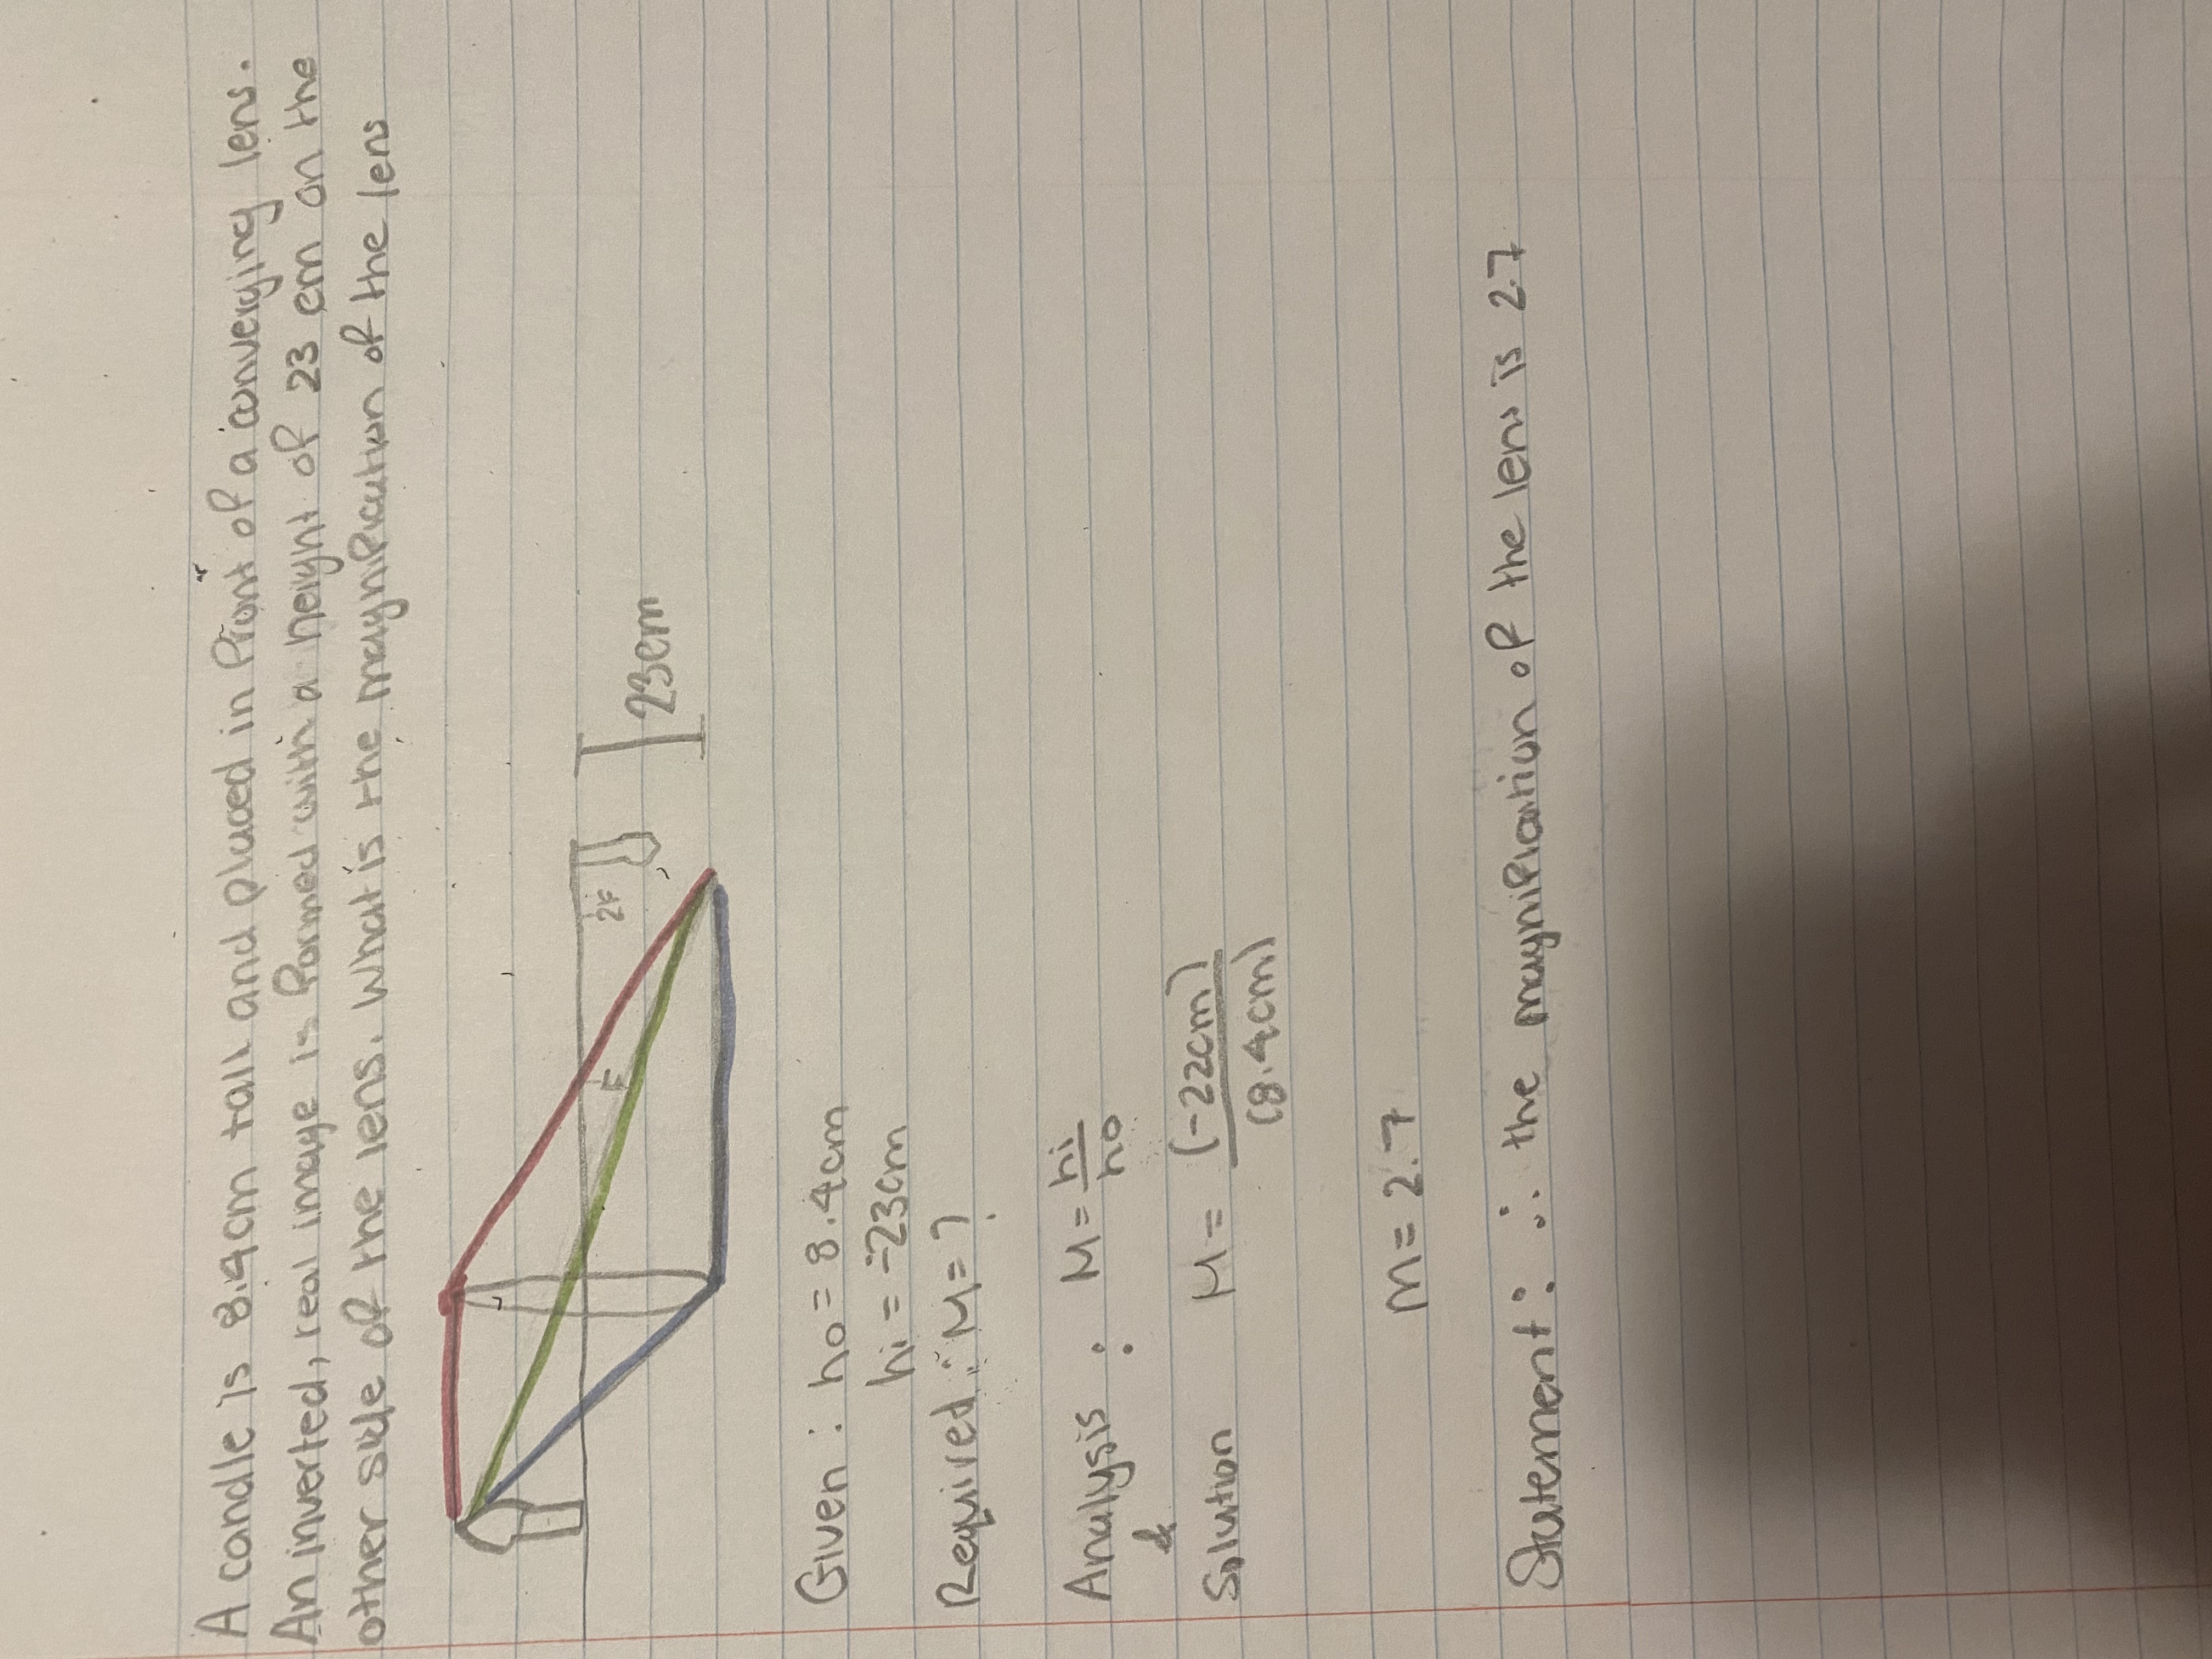 A candle is 8.4cm tall and placed in front of a converging lens.
An inverted, real image is formed with a height of 23 cm on the
other side of the lens. What is the magnification of the lens
F
2F
23cm
Given : ho = 8.4cm
hi = -23cm
Required : M = ?
Analysis : M = hi/ho
&
Solution M = (-22cm)/(8.4cm)
M = 2.7
Statement : ∴ the magnification of the lens is 2.7